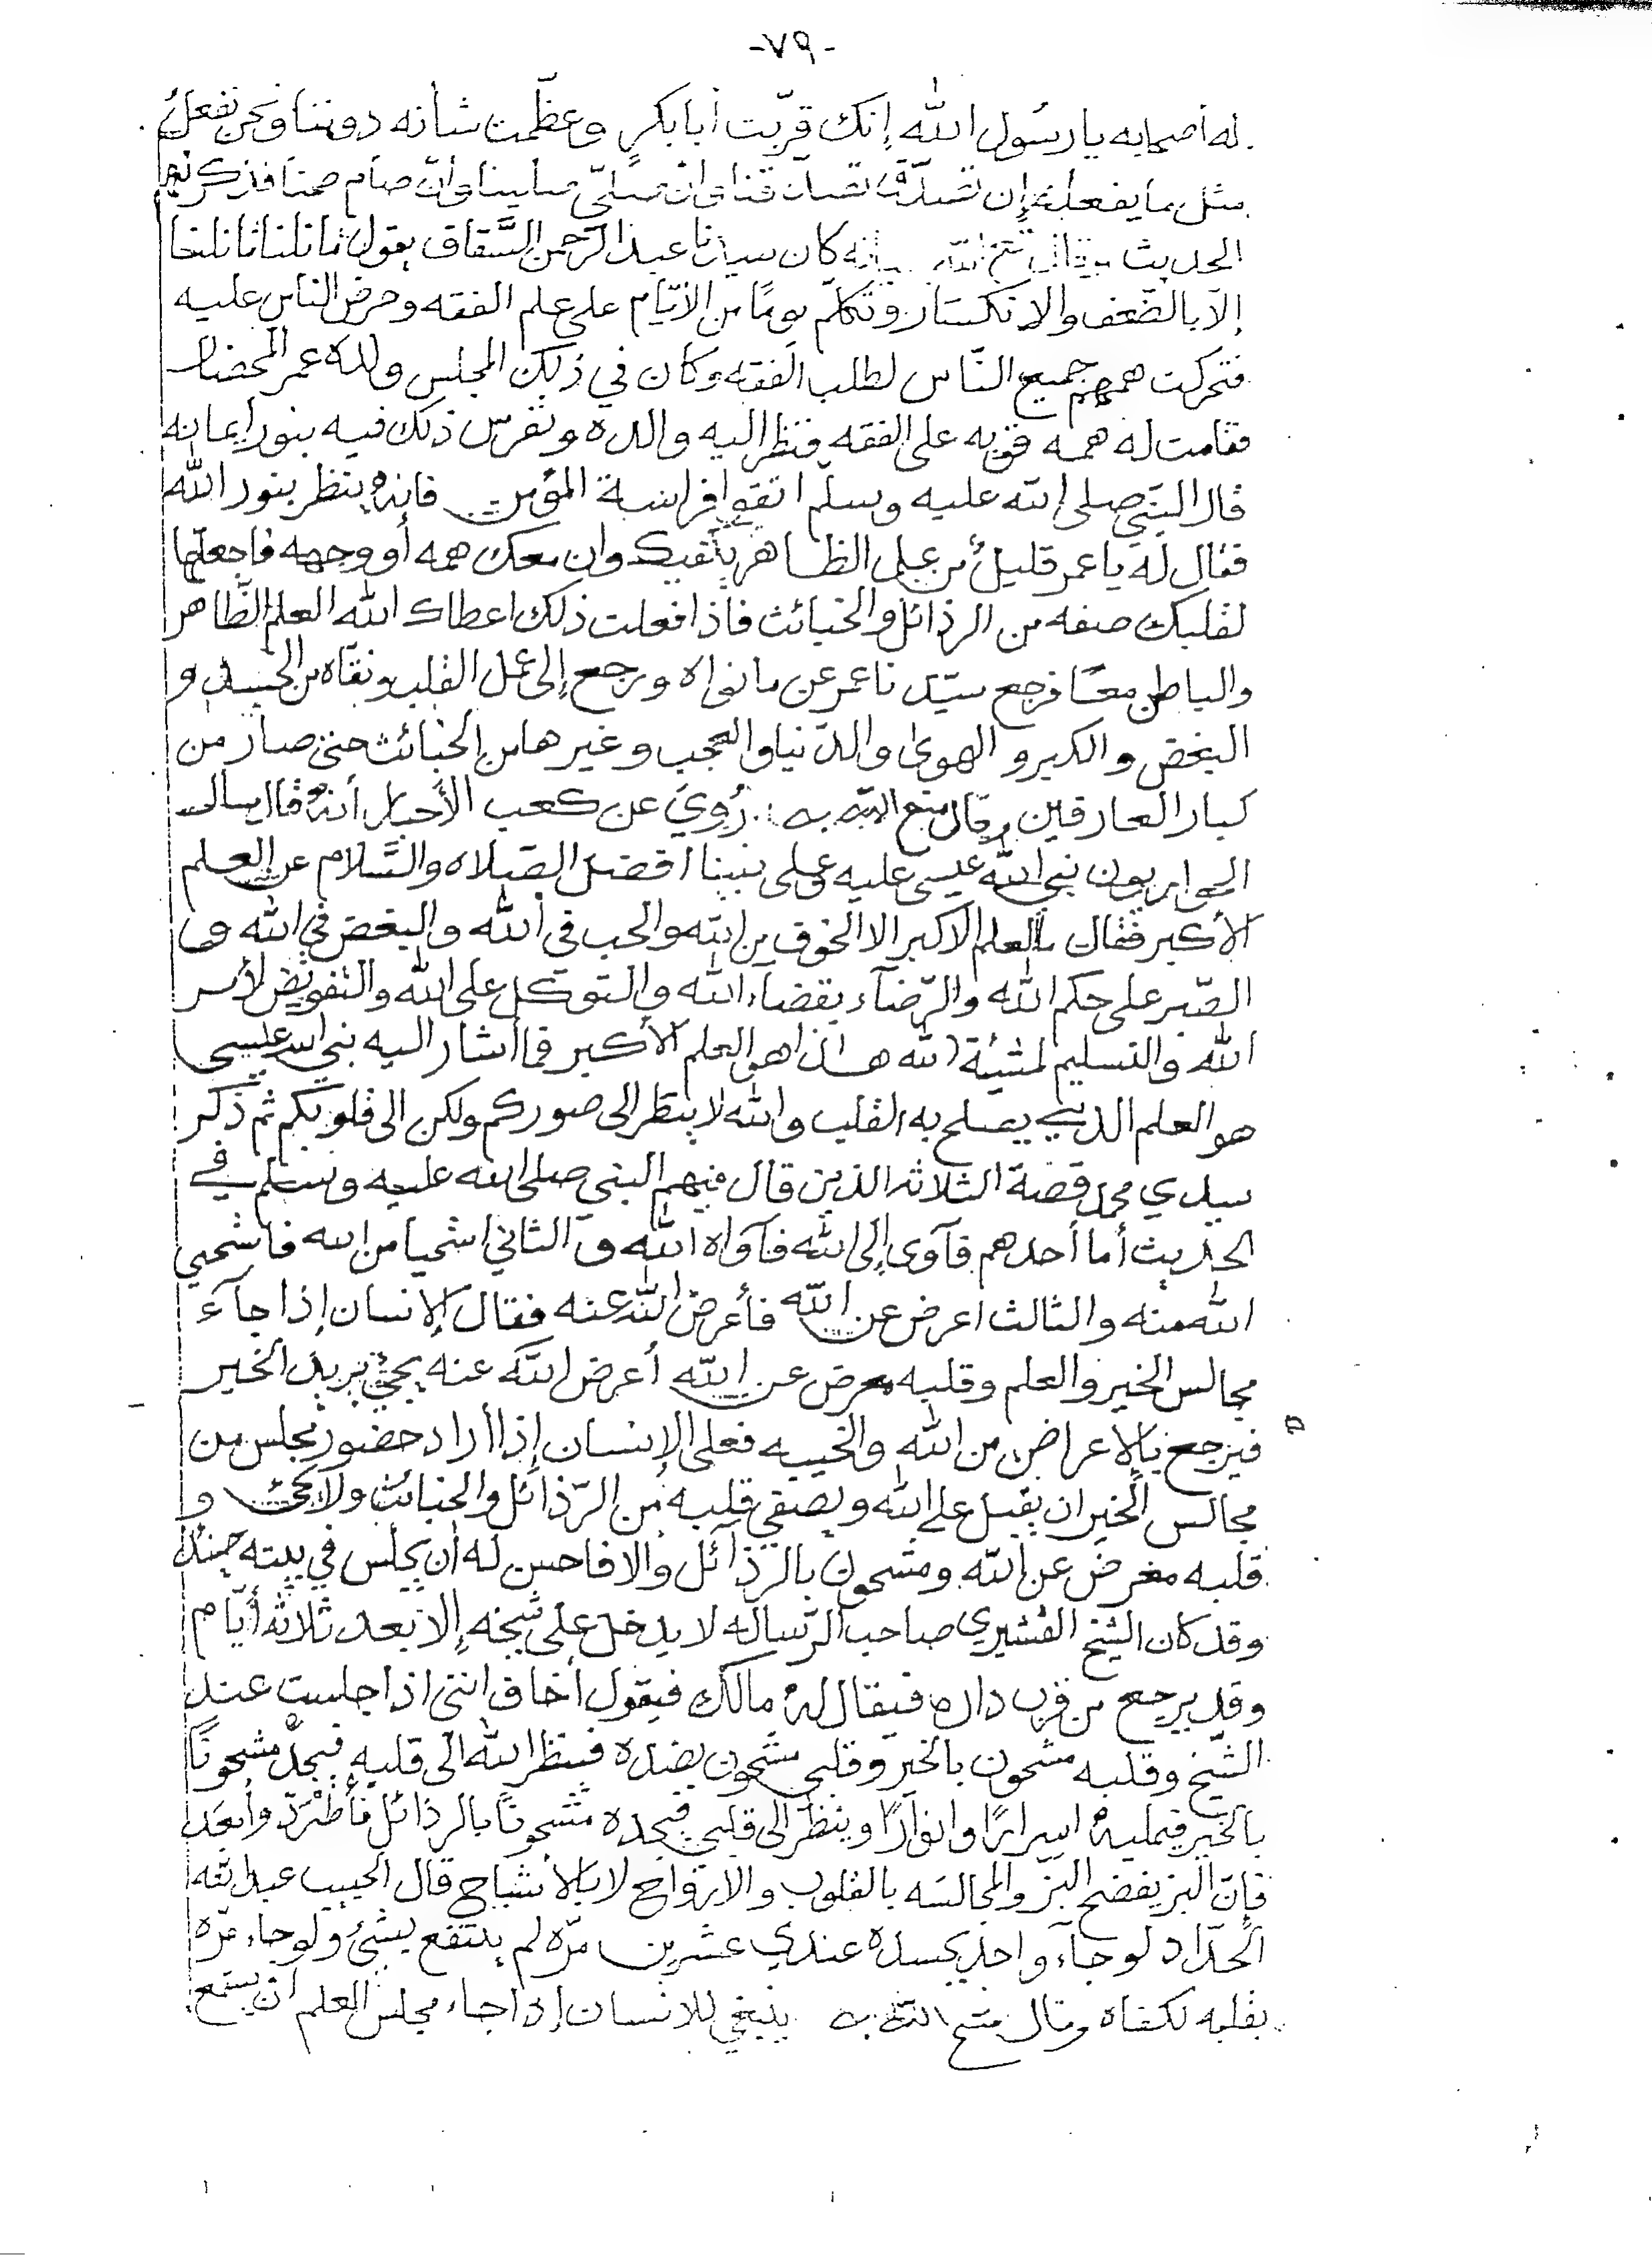 -٧٩-
له أصحابه يا رسول الله إنك قرّبت أبابكرٍ وعظّمت شأنه دوننا ونحن نفعل
مثل ما يفعله إن تصدّق تصدّقنا وان صلّى صلينا وان صام صمنا فذكر لهم
الحديث وقال متع الله به كان سيدنا عبد الرّحمن السَّقاف يقول ما نلنا ما نلنا
إلا بالضّعف والانكسار وتكلّم يومًا من الأيّام على علم الفقه وحرض الناس عليه
فتحركت همهم جميع النّاس لطلب الفقه وكان في ذلك المجلس ولده عمر المحضار
فقامت له همه قويه على الفقه فنظر اليه والده وتفرس ذلك فيه بنور إيمانه
قال النبي صلى الله عليه وسلم اتقوا فراسة المؤمن فإنه ينظر بنور الله
فقال له يا عمر قليلٌ من علم الظاهر يكفيك وان معك همه أو وجهه فاجعلها
لقلبك صفه من الرذائل والخبائث فاذا فعلت ذلك اعطاك الله العلم الظّاهر
والباطن معًا فرجع سيّدنا عمر عن ما نواه ورجع إلى عمل القلب ونقّاه من الحسد و
البغض والكبر و الهوى والدّنيا والعجب وغيرها من الخبائث حتى صار من
كبار العارفين وقال متع الله به : رُوِيَ عن كعب الأحبار أنهُ قال سال
الحواريون نبي الله عيسى عليه وعلى نبينا افضل الصّلاه والسَّلام عن العلم
الأكبر فقال ما العلم الاكبر الا الخوف من الله والحب في الله والبغض في الله و
الصّبر على حكم الله والرّضآء بقضاء الله والتوكل على الله والتفويض لأمر
الله والتسليم لمشيئة الله هذا هو العلم الأكبر فما أشار اليه نبي الله عيسى
هو العلم الذي يصلح به القلب والله لا ينظر الى صوركم ولكن الى قلوبكم ثم ذكر
سيدي محمد قصة الثلاثه الذين قال فيهم النبي صلى الله عليه وسلم في
الحديث أما أحدهم فآوى إلى الله فآواه الله و الثاني استحيا من الله فاستحي
الله منه والثالث اعرض عن الله فأعرض الله عنه فقال الإنسان إذا جآء
مجالس الخير والعلم وقلبه معرض عن الله أعرض الله عنه يجئ يريد الخير
فيرجع بالإعراض من الله والخيبه فعلى الإنسان إذا أراد حضور مجلس من
مجالس الخير ان يقبل على الله ويصفي قلبه من الرّذائل والخبائث ولا يجئ و
قلبه معرض عن الله ومشحون بالرذآئل والا فاحسن له أن يجلس في بيته
وقد كان الشيخ القشيري صاحب الرّساله لا يدخل على شيخه إلا بعد ثلاثه أيّام
وقد يرجع من قرب داره فيقال لهُ مالك فيقول أخاف انني اذا جلست عند
الشّيخ وقلبه مشحون بالخير وقلبي مشحون بضده فينظر الله الى قلبه فيجدهُ مشحونًا
بالخير فيمليهُ اسرارًا وانوارًا وينظر الى قلبي فيجده مشحونًا بالرذائل فأطْرَد وأبعَد
فإنّ البز يفضح البز والمجالسه بالقلوب والارواح لا بالأشباح قال الحبيب عبد الله
الحدّاد لو جآء واحد بجسده عندي عشرين مرّه لم ينتفع بشئ ولو جاء مرّه
بقلبه لكفاه وقال متع الله به ينبغي للانسان إذا جاء مجلس العلم ان يستمع